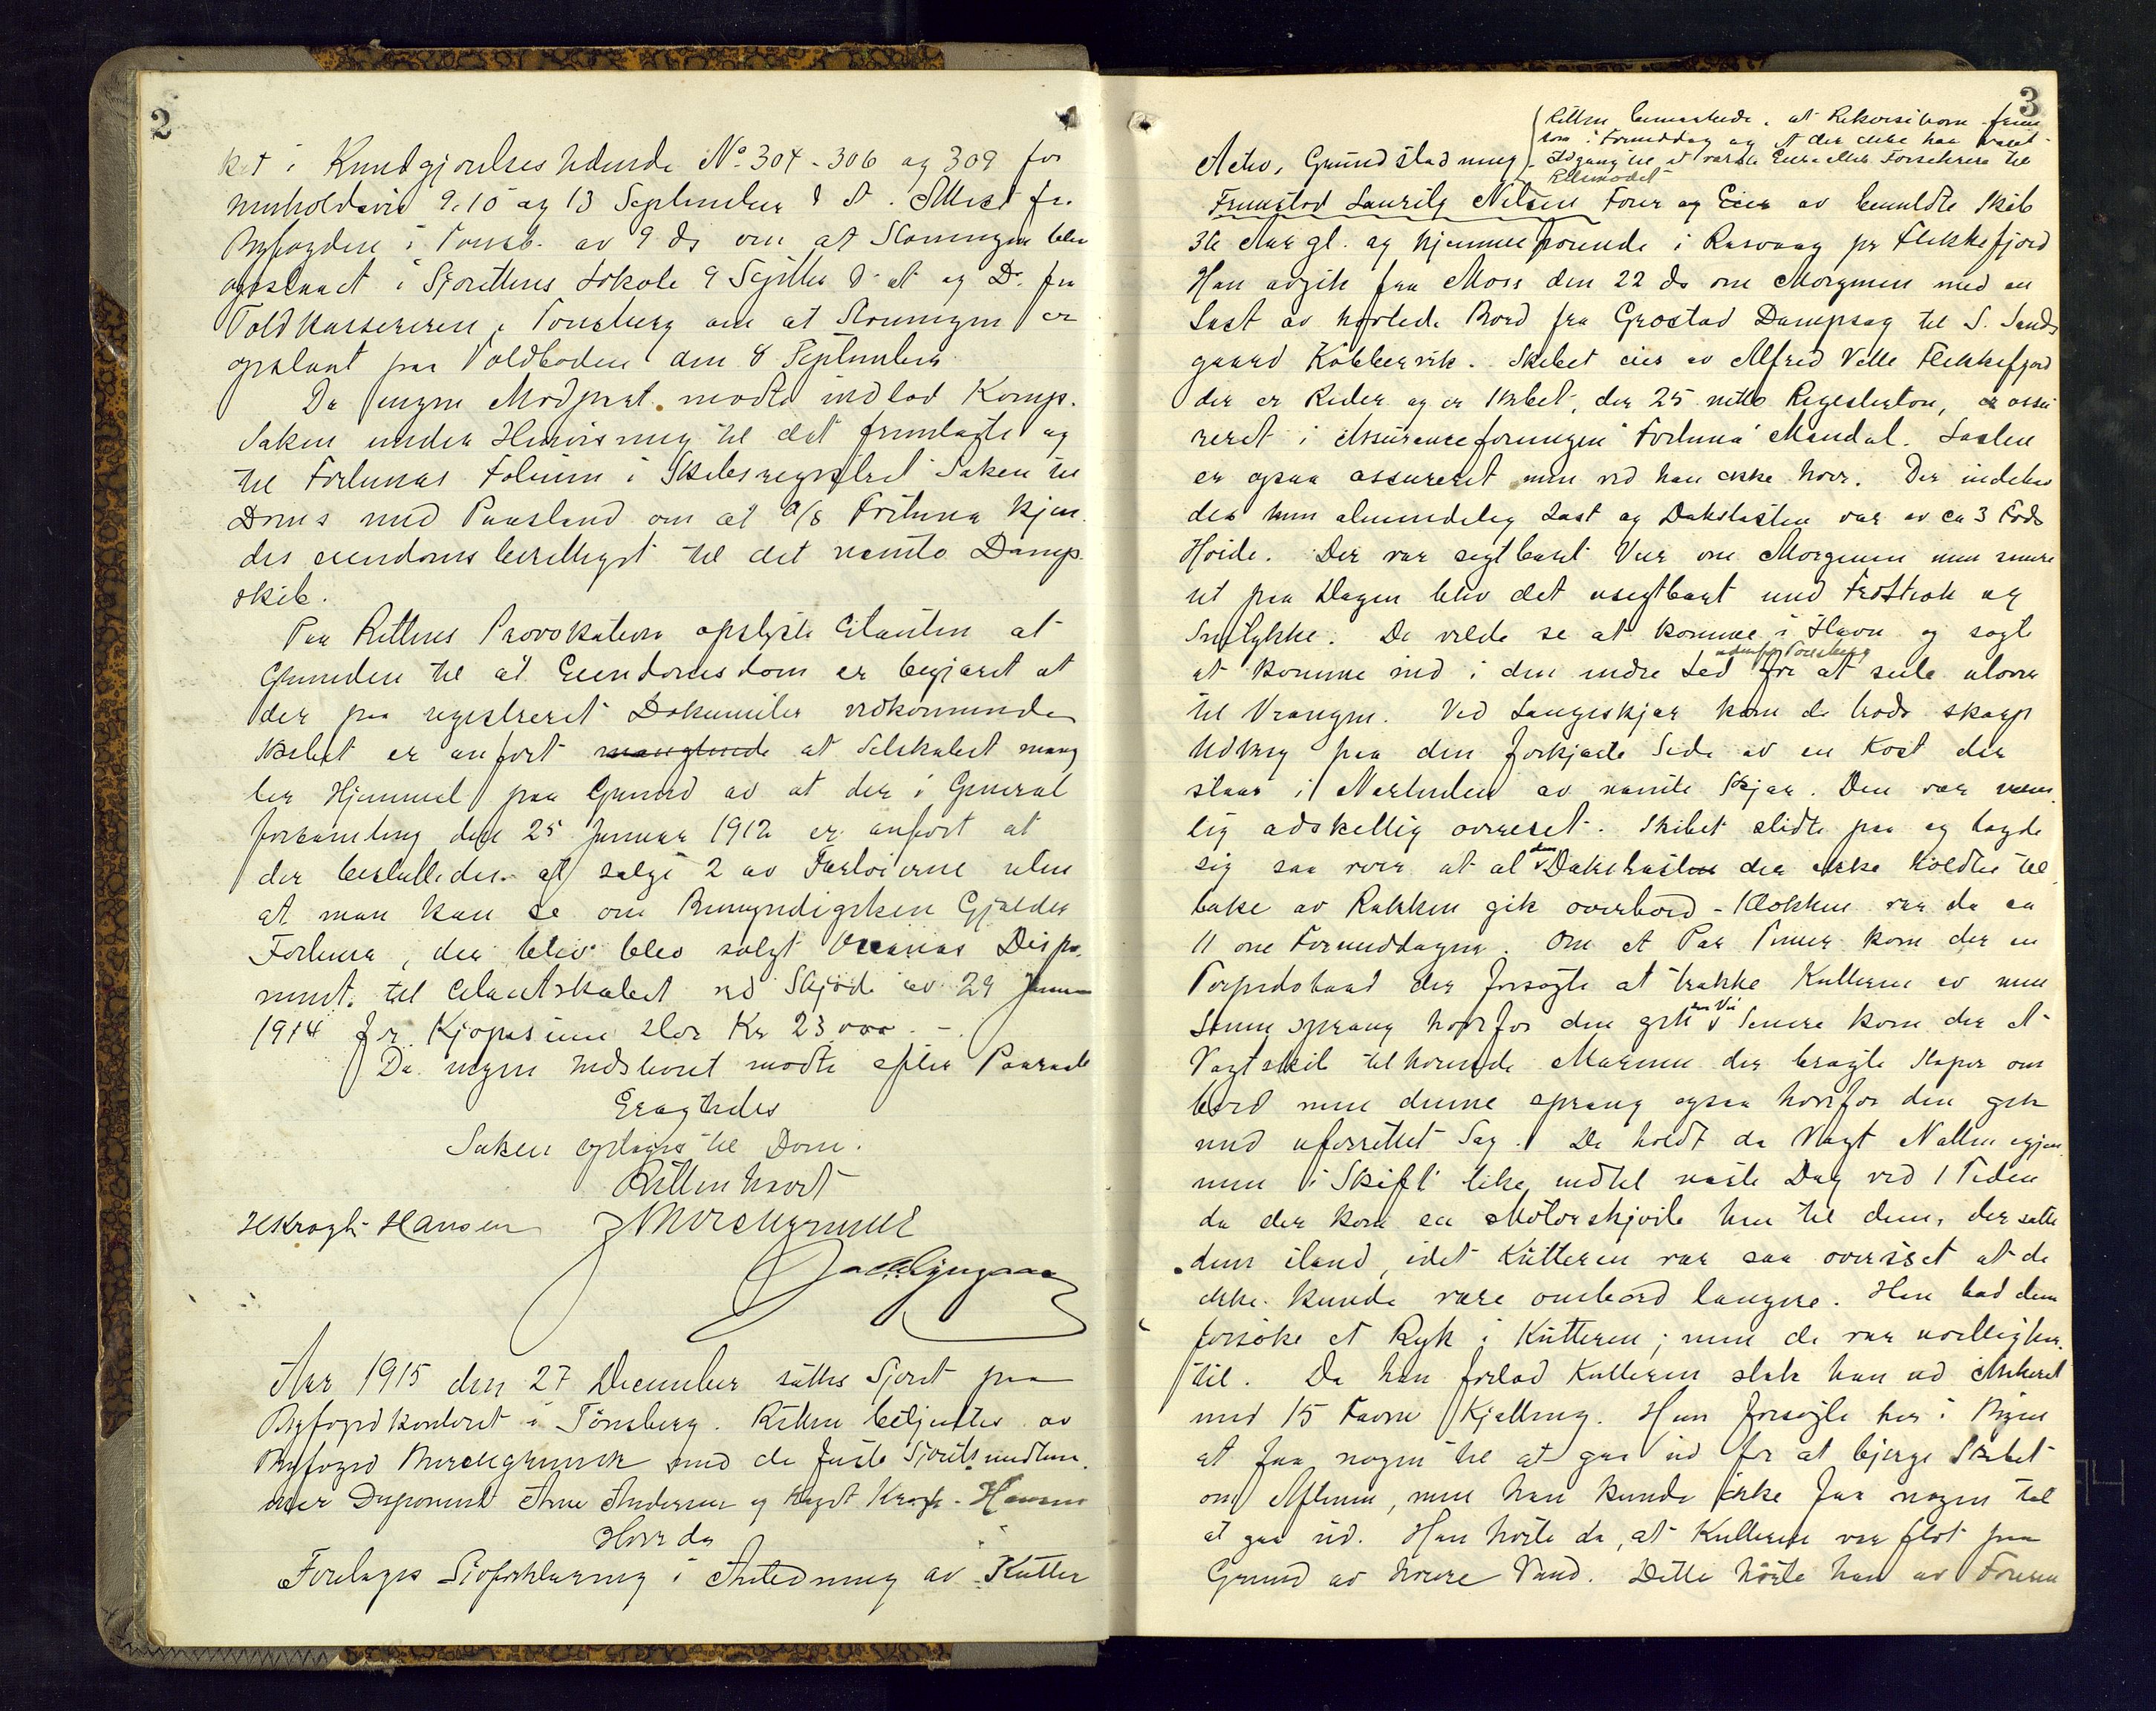 2
ket i Kundgjørelsestidende No 304-306 og 309 for
9.10 og 13 September d A. Attest fra
Byfogden i Tønsb. av 9 ds om at Stevningen blev
opslaaet i Sjørettens Lokale 9 Septbr d. A. og Do. fra
Toldkassereren i Tønsberg om at Stevningen er
opslaat paa Toldboden den 8 September
Da ingen Modpart. mødte indlod Komp.
Saken under Henvisning til det fremlagte og
til Fortunas Folium i Skibsregistret Saken til
Doms med Paastand om at D/S Fortuna kjen
des eiendomsberettiget til det nævnte Damp
skib.
Paa Rettens Provokation oplyste Citanten at
Grunden til at Eiendomsdom er begjæret at
der paa registreret Dokumenter vedkommende
Skibet er anført manglende at Selskabet mang
ler Hjemmel paa Grund av at der i General
forsamling den 25 Januar 1912 er anført at
der besluttedes at sælge 2 av Fartøierne uten
at man kan se om Bemyndigelsen Gjælder
Fortuna, der blev blev solgt Oceanas Dispo
nent. til Citantskabet ved Skjøde av 29 Januar
1914 for Kjøpesum stor Kr 23000.-
Da ingen Indstevnt mødte efter Paaraab
Eragtedes
Saken optages til Dom.
Retten hævet
H Krogh-Hansen
Aar 1915 den 27 December sattes Sjøret paa
Byfogdkontoret i Tønsberg. Retten betjentes av
Byfogd med de faste Sjøretsmedlem
mer Disponent Arne Andersen og Krogh-Hansen
Hvor da
Foretages Sjøforklaring i Anledning av Kutter
3
Retten bemerkede, at Rekvisitionen frem
kom i Formiddag og at der ikke har været
Adgang til at varsle Eier eller Forsikrere til
Retsmødet
Activ, Grundstødning.
Fremstod Lauritz Nilsen Fører og Eier av bemeldte Skib
36 Aar gl. og hjemmehørende i Rasvaag pr Flekkefjord
Han avgik fra Moss den 22 ds om Morgenen med en
Last av høvlede Bord fra Grøstad Dampsag til S. Sands
gaard Kobbervik. Skibet eies av Alfred Velle Flekkefjord
der er Reder og er Skibet, der 25 netto Registerton, er assu
reret i Assuranceforeningen "Fortuna" Mandal. Lasten
er ogsaa assureret men ved han ikke hvor. Der indehav
des kun almindelig Last og Dækslasten var av ca 3 Fods
Høide. Der var sigtbart Veir om Morgenen men senere
ut paa Dagen blev det usigtbart med Frostrøk og
Snetykke. De vilde se at komme i Havn og søgte
at komme ind i den indre Led udenfor Tønsberg for at seile
til Vrangen. Ved Langeskjær kom de trods skarp
Udkig paa den forkjerte Side av en Kost der
staar i Nærheden av nævnte Skjær. Den var nem
lig adskellig overiset. Skibet slidte paa og lagde
sig saa over at al den Dækslast der ikke holdtes til
bake av Rækken gik overbord - Klokken var da ca
11 om Formiddagen. Om et Par Timer kom der en
Torpedobaad der forsøgte at trække Kutteren av men
Linen sprang hvorfor den gik sin Vei Senere kom der et
Vagtskib tilhørende Marinen der bragte Slæper om
bord men denne sprang ogsaa hvorfor den gik
med uforrettet Sag. De holdt da Vagt Natten igjen
nem i Skift like indtil næste Dag ved 1 Tiden
da der kom en Motorskjøite hen til dem, der satte
dem iland, idet Kutteren var saa overiset at de
ikke kunde være ombord længere. Han bad dem
forsøke et Ryk i Kutteren; men de var uvillige her
til. Da han forlod Kutteren stak han ud Ankeret
med 15 Favne Kjetting. Han forsøgte her i Byen
at faa nogen til at gaa ud for at bjerge Skibet
om Aftenen, men han kunde ikke faa nogen til
at gaa ud. Han hørte da, at Kutteren var flot paa
Grund av høiere Vand. Dette hørte han av Føreren